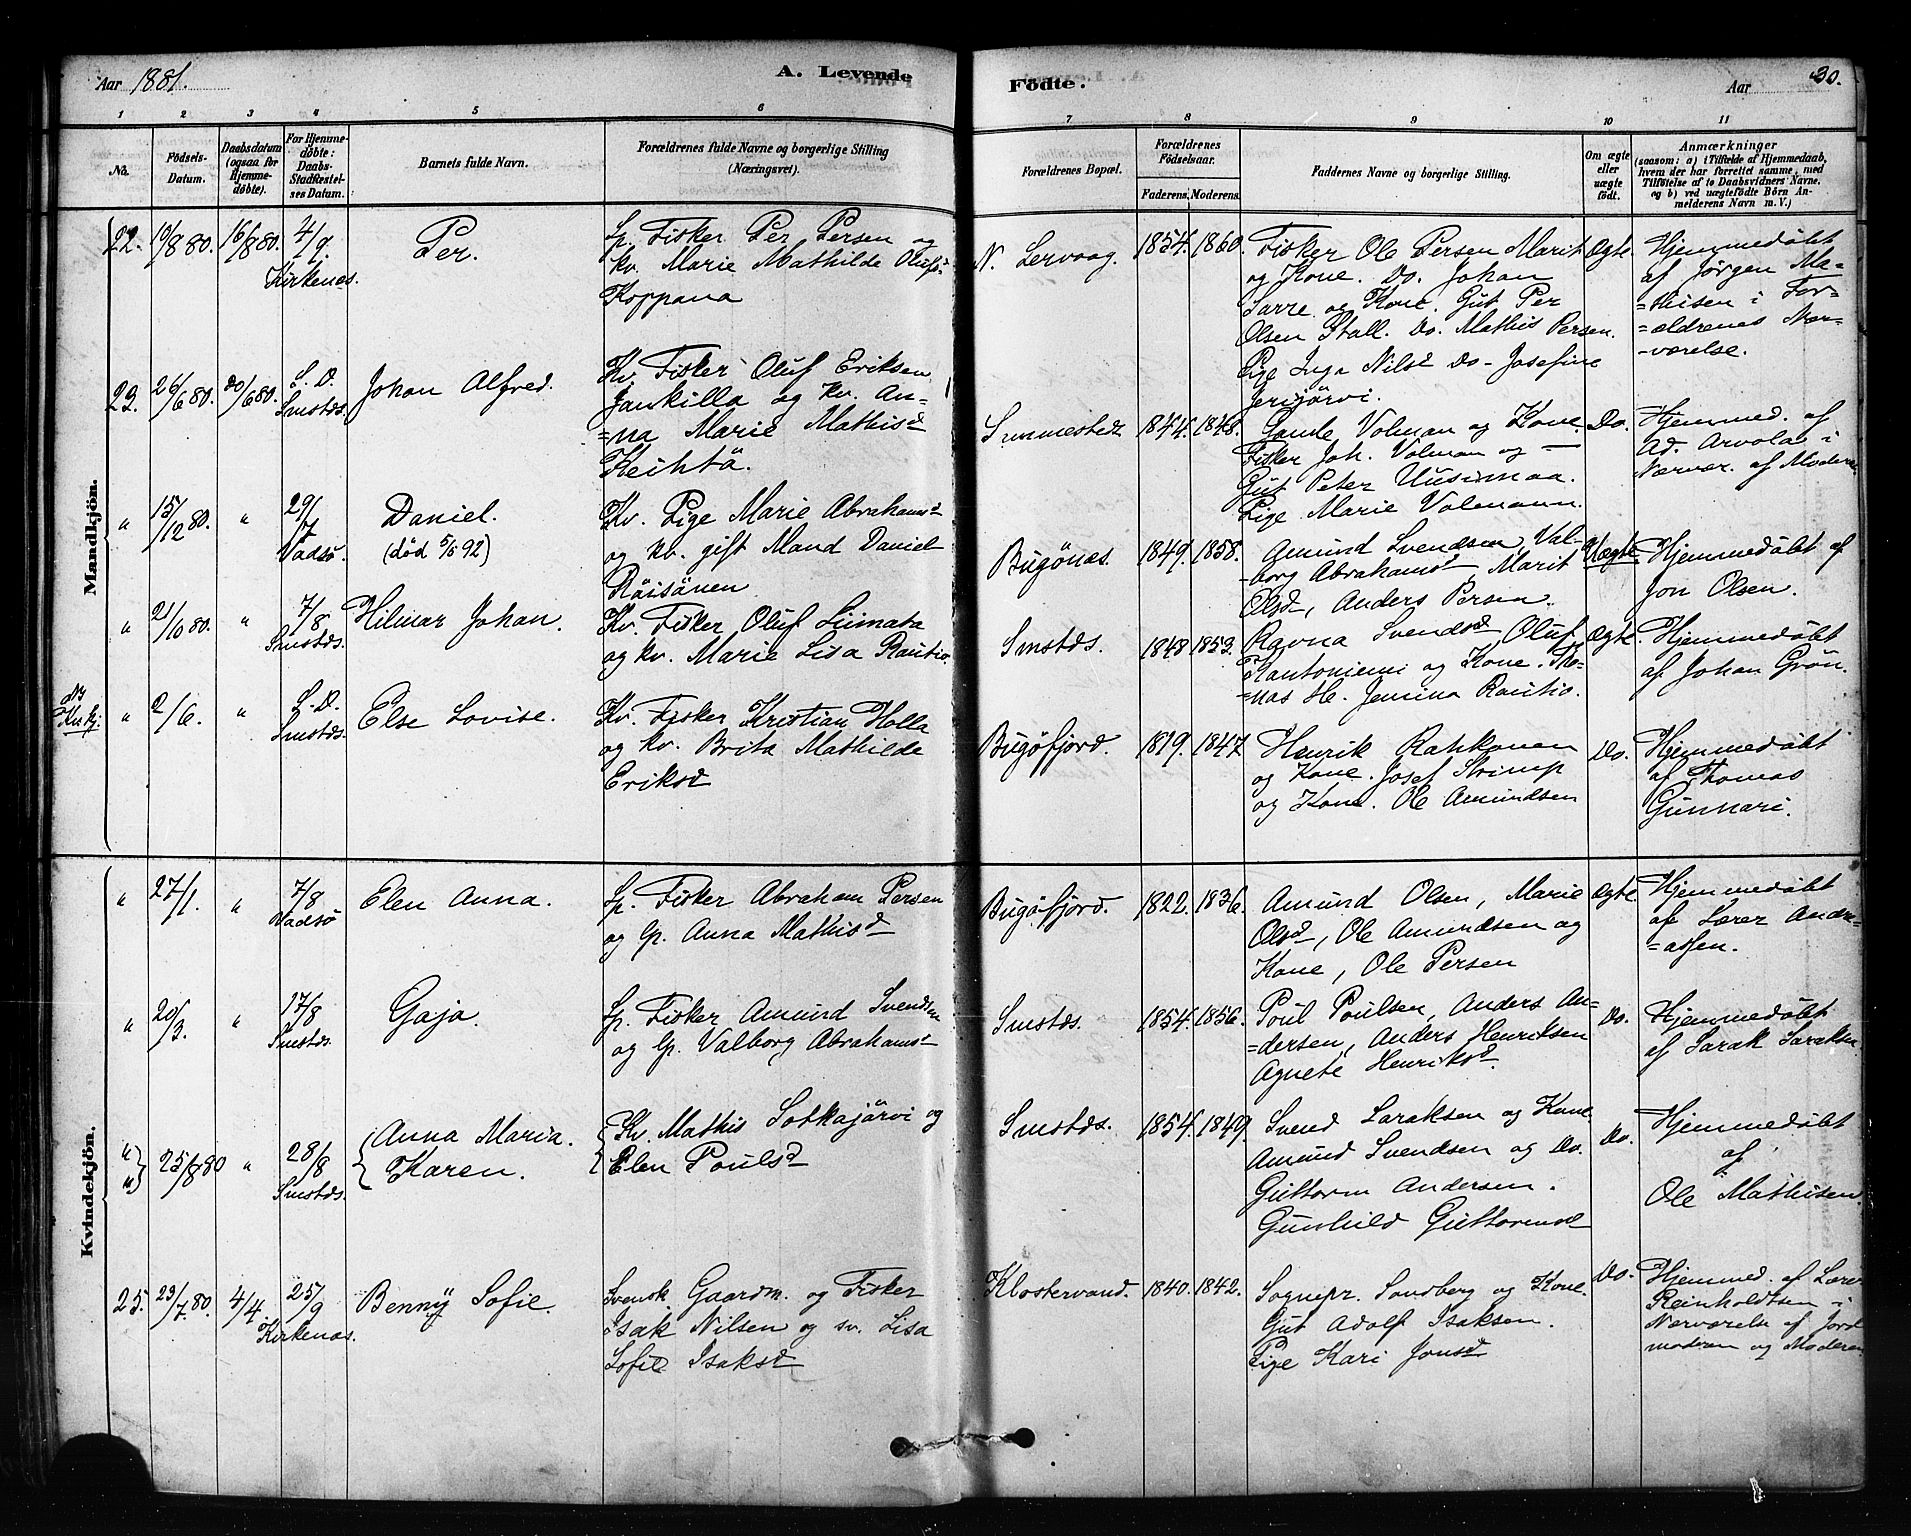 Aar 1881.
A. Levende
Födte.
Aar
30.
1 2 3 4 5 6
7 8 9 10 11
No.
Födsels-
Datum.
Daabsdatum
(ogsaa for
Hjemme-
döbte).
For Hjemme-
döbte:
Daabs-
Stadfæstel-
ses Datum.
Barnets fulde Navn.
Forældrenes fulde Navne og borgerlige Stilling
(Næringsvei).
Forældrenes Bopæl.
Forældrenes
Födselsaar.
Faderens. Moderens.
Faddernes Navne og borgerlige Stilling.
Om ægte
eller
uægte
födt.
Anmærkninger
(saasom: a) i Tilfælde af Hjemmedaab,
hvem der har forrettet samme, med
Tilföielse af to Daabsvidners Navne,
og b) ved uægtefödte Börn An-
melderens Navn m. V.)
Mandkjön.
22. 19/8 80. 16/8 80. 4/9. Kirkenæs.
Per.
Lp. Fisker Per Persen og
kv. Marie Mathilde Olufsd
Koppana
N. Lervaag. 1854. 1860.
Fisker Ole Persen Marit
og Kone. Do. Johan
Sarre og Kone. Gut Per
Olsen Stall. Do. Mathis Persen.
Pige Inga Nilsd Do. Josefine
Jerijärvi.
Ægte.
Hjemmedöbt
af Jörgen Ma-
=thisen i For-
=ældrenes Nær-
-værelse.
23. 26/6 80. 20/6 80. S. D. Smstds.
Johan Alfred.
Kv. Fisker Oluf Eriksen
Jankilla og kv. An-
=na Marie Mathisd
Keihtä.
Smmesteds 1844. 1848.
Gamle Volman og Kone.
Fisker Joh. Volman og —
Gut Peter Uusimaa.
Pige Marie Volmann.
Do.
Hjemmed. af
Ad. Arvola i
Nærvær. af Moderen
" 15/12 80. " 29/7 Vadsø.
Daniel.
(död 5/5 92)
Kv. Pige Marie Abrahamsd
og kv. gift Mand Daniel
Räisänen
Bugönæs. 1849. 1858.
Amund Svendsen, Val-
-borg Abrahamsd, Marit
Olsd, Anders Persen.
Uægte
Hjemmedöbt af
Jon Olsen.
" 21/10 80. " 7/8 Smstds.
Hilmar Johan.
Kv. Fisker Oluf Liimata
og kv. Marie Lisa Rautio
Smstds. 1848 1853.
Ravna Svendsd Oluf
Rantoniemi og Kone. Tho-
=mas H. Jemina Rautio.
Ægte
Hjemmedöbt
af Johan Grön.
" 2/6. " S. D. Smstds.
Else Lovise.
Kv. Fisker Kristian Holla
og kv. Brita Mathilde
Eriksd
Bugöfjord. 1819. 1847
Henrik Rahkonen
og Kone. Josef Strimp
og Kone. Ole Amundsen
Do.
Hjemmedöbt
af Thomas
Gunnari.
Kvindekjön.
" 27/1. " 7/8 Vadsø
Elen Anna.
Lp. Fisker Abraham Persen
og lp. Anna Mathisd
Bugöfjord. 1822. 1836.
Amund Olsen, Marie
Olsd, Ole Amundsen og
Kone, Ole Persen
Ægte.
Hjemmedöbt
af Lærer Andre-
=assen.
" 20/3. " 17/8 Smstds.
Gaja.
Lp. Fisker Amund Svendsen
og lp. Valborg Abrahamsd
Smstds. 1854. 1856.
Poul Poulsen, Anders An-
=dersen, Anders Henriksen
Agnete Henriksd.
Do.
Hjemmedöbt
af Sarak Saraksen
" " } 25/8 80 " 28/8 Smstds.
{ Anna Maria.
Karen.
{ Kv. Mathis Sotkajärvi og
Elen Poulsd
Smstds. 1854. 1849
Svend Saraksen og Kone.
Amund Svendsen og Do.
Guttorm Andersen.
Gunhild Guttormsd
Do.
Hjemmedöbt
af
Ole Mathisen
25. 23/7. 80. 4/4 25/9 Kirkenæs.
Benny Sofie.
Svensk Gaardm. og Fisker
Isak Nilsen og sv. Lisa
Sofie Isaksd
Klostervand. 1840. 1842.
Sognepr. Sandberg og Kone.
Gut Adolf Isaksen.
Pige Kari Jonsd
Do.
Hjemmed. af Lærer
Reinholdtsen i
Nærværelse af Jord-
moderen og Moderen